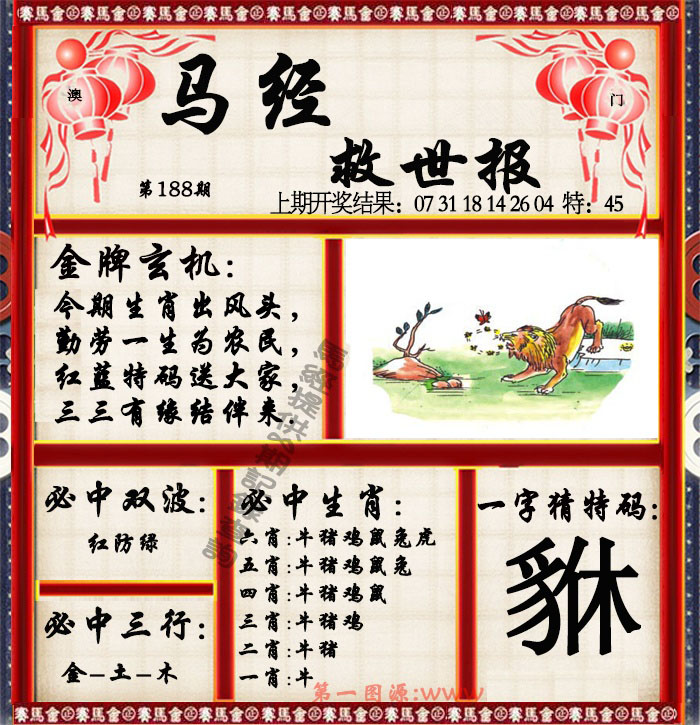 澳
门
马经
救世报
第188期
上期开奖结果：07 31 18 14 26 04 特：45
金牌玄机：
今期生肖出风头，
勤劳一生为农民，
红蓝特码送大家，
三三有缘结伴来.
必中双波：
红防绿
必中三行：
金-土-木
必中生肖：
六肖：牛猪鸡鼠兔虎
五肖：牛猪鸡鼠兔
四肖：牛猪鸡鼠
三肖：牛猪鸡
二肖：牛猪
一肖：牛
一字猜特码：
貅
第一图源:www